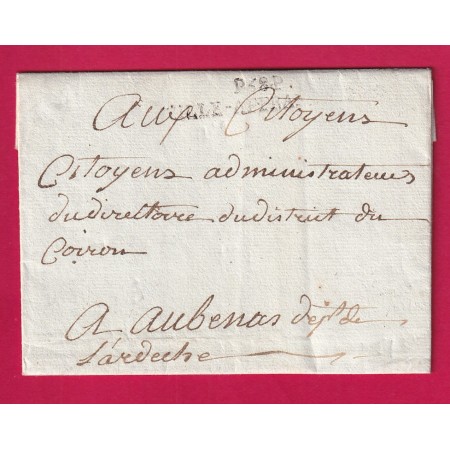 P.42.P.
Aux Citoyens
Citoyens administrateurs
du directoire du district du
Coiron
A aubenas dépt de
L'ardeche